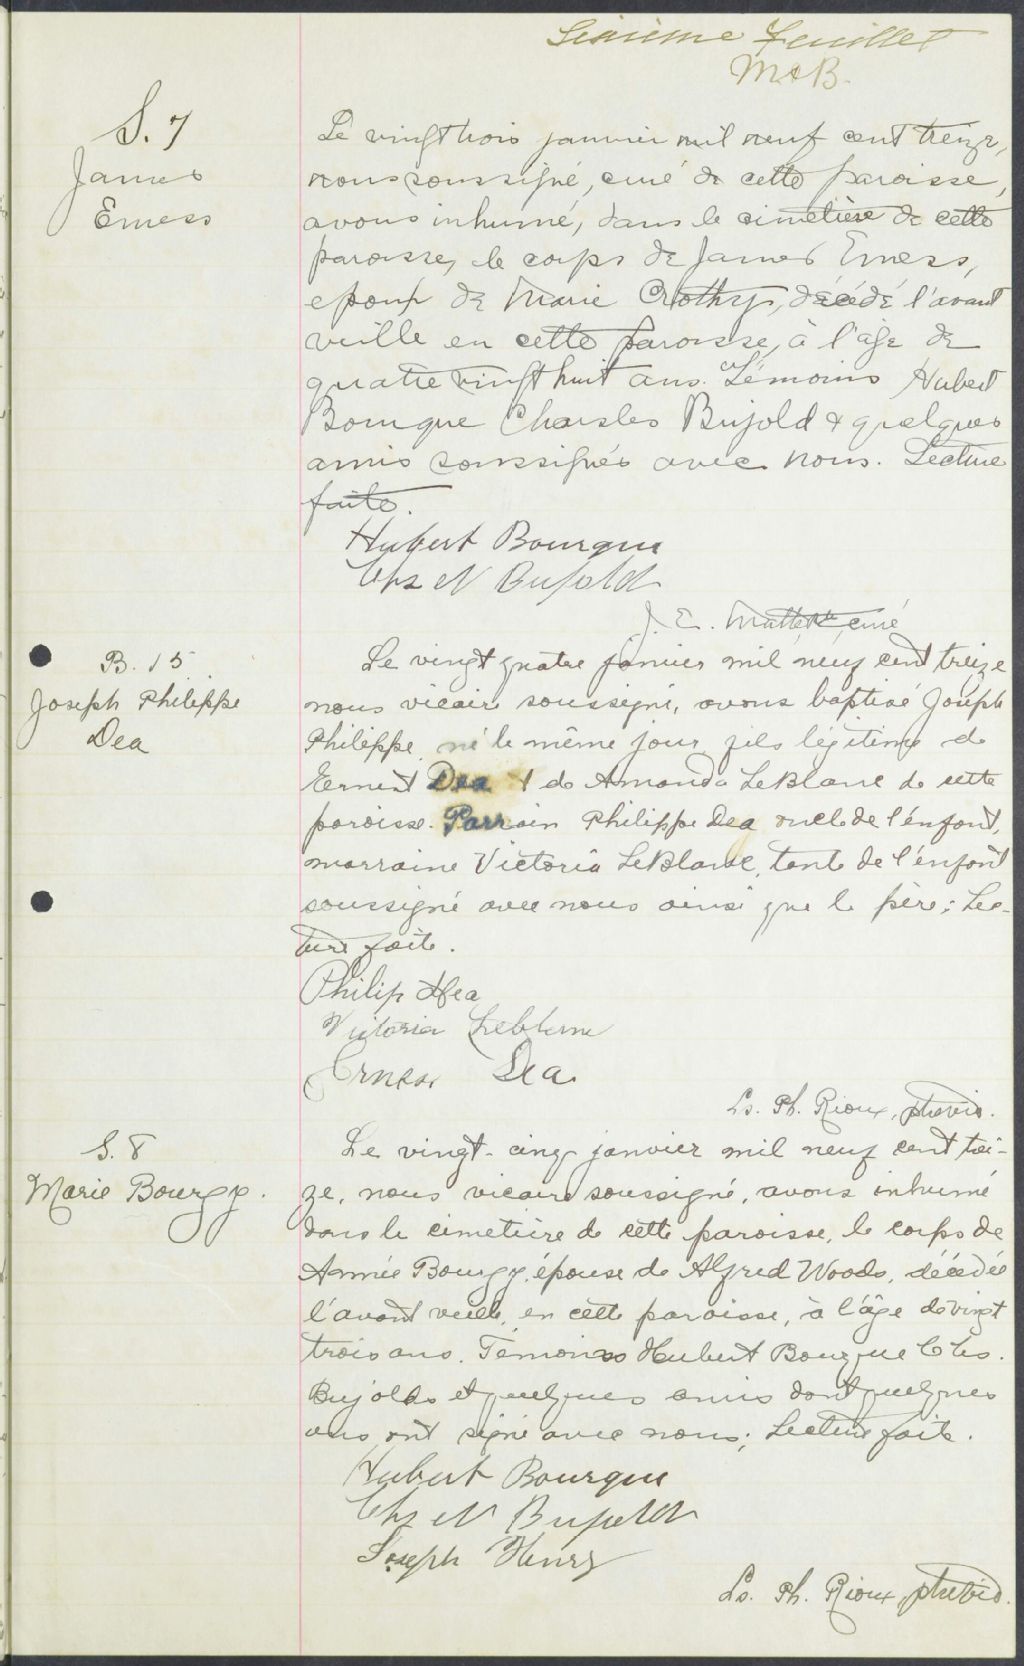 Sixième feuillet
M&B.
S. 7
James
Emess
Le vingt trois janvier mil neuf cent treize,
nous soussigné, curé de cette paroisse,
avons inhumé, dans le cimetière de cette
paroisse, le corps de James Emess,
epoux de Marie Crothy, décédé l'avant
veille en cette paroisse, à l'âge de
quatre vingt huit ans. Témoins Hubert
Bourque Charles Bujold & quelques
amis soussignés avec nous. Lecture
faite.
Hubert Bourque
Chs N Bujold
J. E. Matte, ptr, curé
B. 15
Joseph Philippe
Dea
Le vingt quatre janvier mil neuf cent treize
nous vicaire soussigné, avons baptisé Joseph
Philippe né le même jour, fils légitime de
Ernest Dea & de Amanda LeBlanc de cette
paroisse. Parrain Philippe Dea oncle de l'enfant,
marraine Victoria LeBlanc, tante de l'enfant
soussigné avec nous ainsi que le père; Lec-
ture faite.
Philip Dea
Victoria Leblanc
Ernest Dea
Ls. Ph. Rioux, ptre vic.
S. 8
Marie Bourgy.
Le vingt-cinq janvier mil neuf cent trei-
ze, nous vicaire soussigné, avons inhumé
dans le cimetière de cette paroisse, le corps de
Année Bourgy, épouse de Alfred Woods, décédée
l'avant veille, en cette paroisse, à l'âge de vingt
trois ans. Témoins Hubert Bourque Chs.
Bujolds et quelques amis dont quelques
uns ont signé avec nous; Lecture faite.
Hubert Bourque
Chs N Bujold
Joseph Henry
Ls. Ph. Rioux, ptre vic.